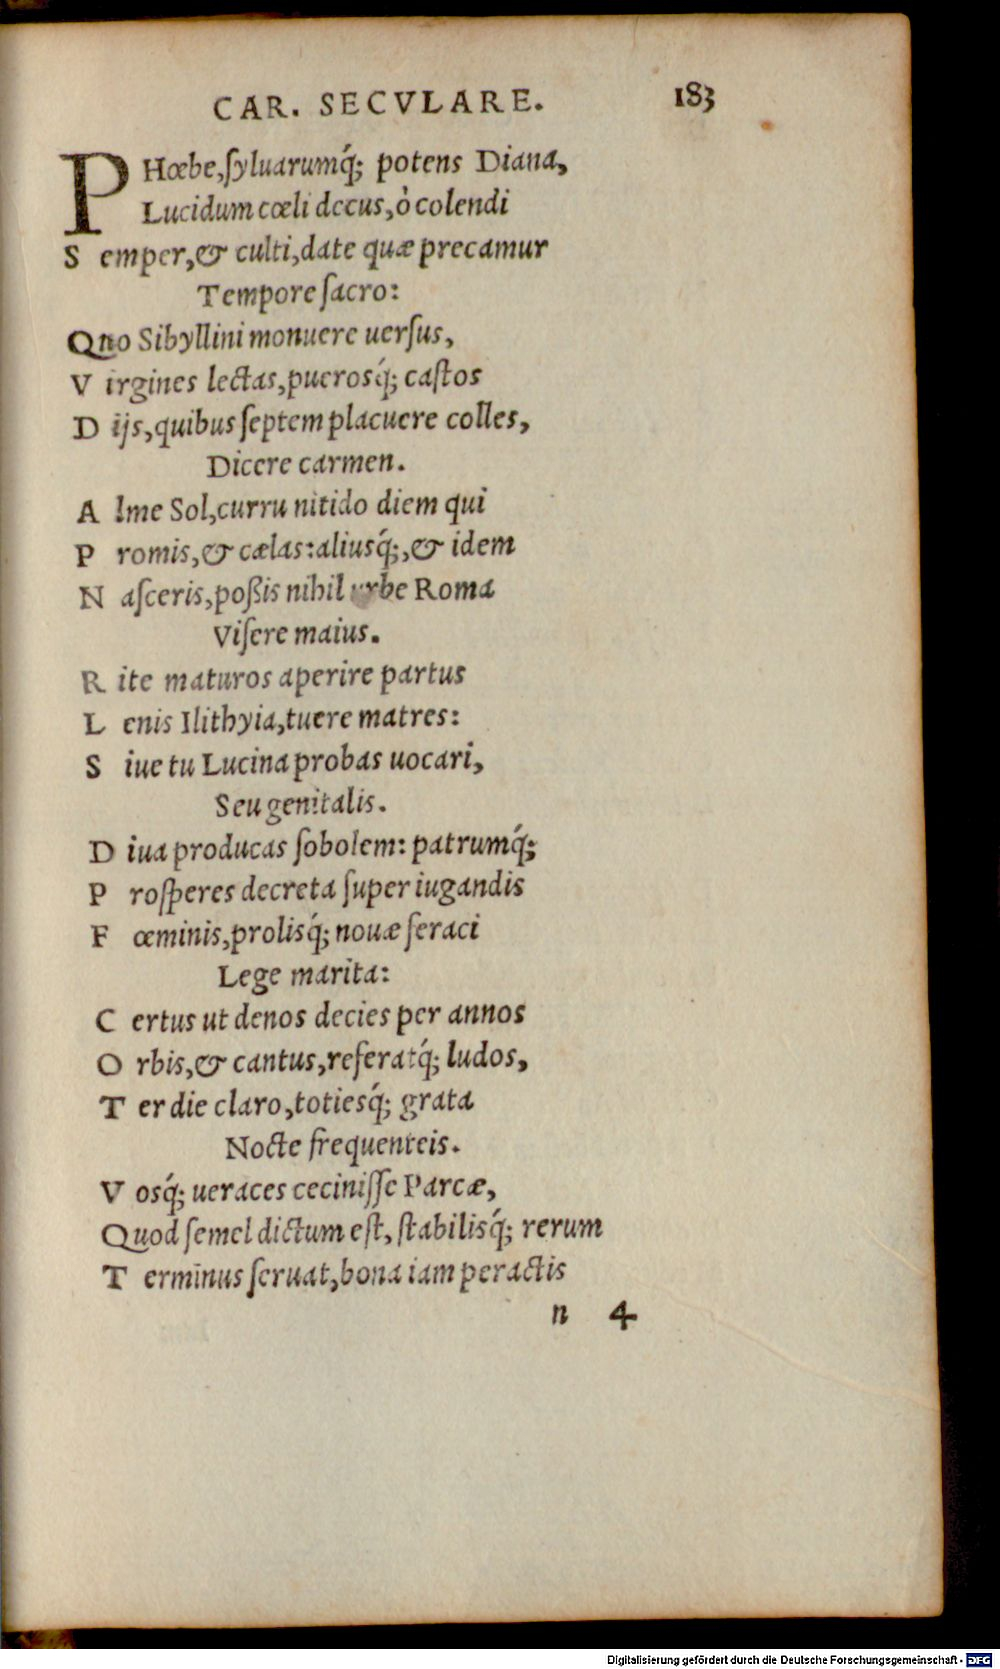 CAR. SECVLARE. 183
PHœbe, ſyluarumq́; potens Diana,
Lucidum cœli decus, ò colendi
Semper, & culti, date quæ precamur
Tempore ſacro:
Quo Sibyllini monuere uerſus,
Virgines lectas, puerosq́; caſtos
Dijs, quibus ſeptem placuere colles,
Dicere carmen.
Alme Sol, curru nitido diem qui
Promis, & cælas: aliusq́;, & idem
Naſceris, poßis nihil urbe Roma
Viſere maius.
Rite maturos aperire partus
Lenis Ilithyia, tuere matres:
Siue tu Lucina probas uocari,
Seu genitalis.
Diua producas ſobolem: patrumq́;
Proſperes decreta ſuper iugandis
Fœminis, prolisq́; nouæ feraci
Lege marita:
Certus ut denos decies per annos
Orbis, & cantus, referatq́; ludos,
Ter die claro, totiesq́; grata
Nocte frequenteis.
Vosq́; ueraces ceciniſſe Parcæ,
Quod ſemel dictum eſt, ſtabilisq́; rerum
Terminus ſeruat, bona iam peractis
n 4
Digitalisierung gefördert durch die Deutsche Forschungsgemeinschaft - DFG